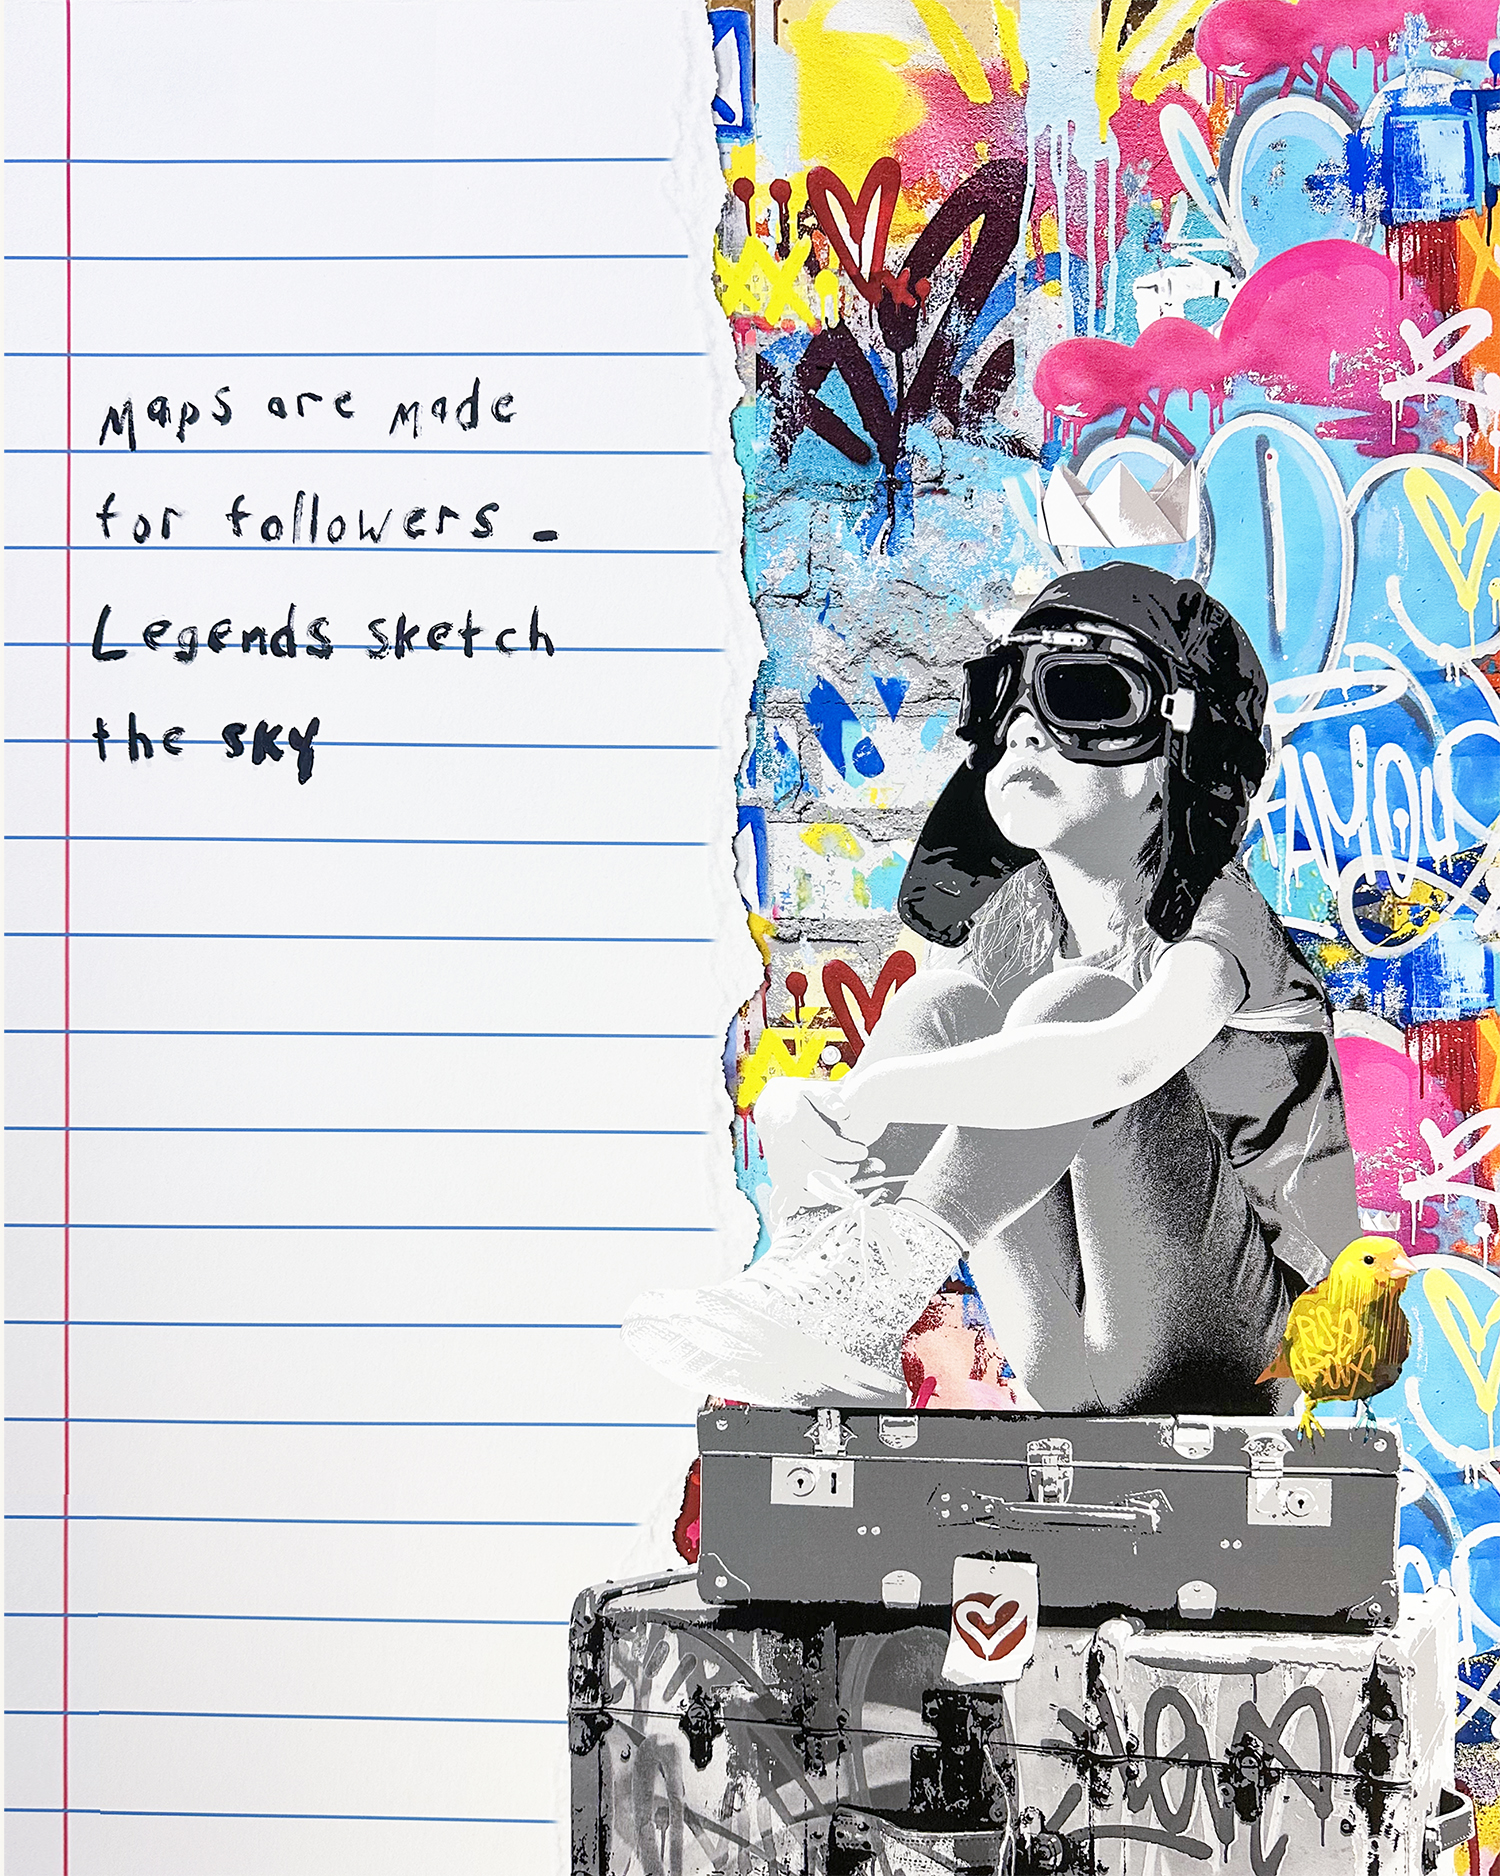 Maps are made
for followers -
Legends sketch
the sky
FAMOUS